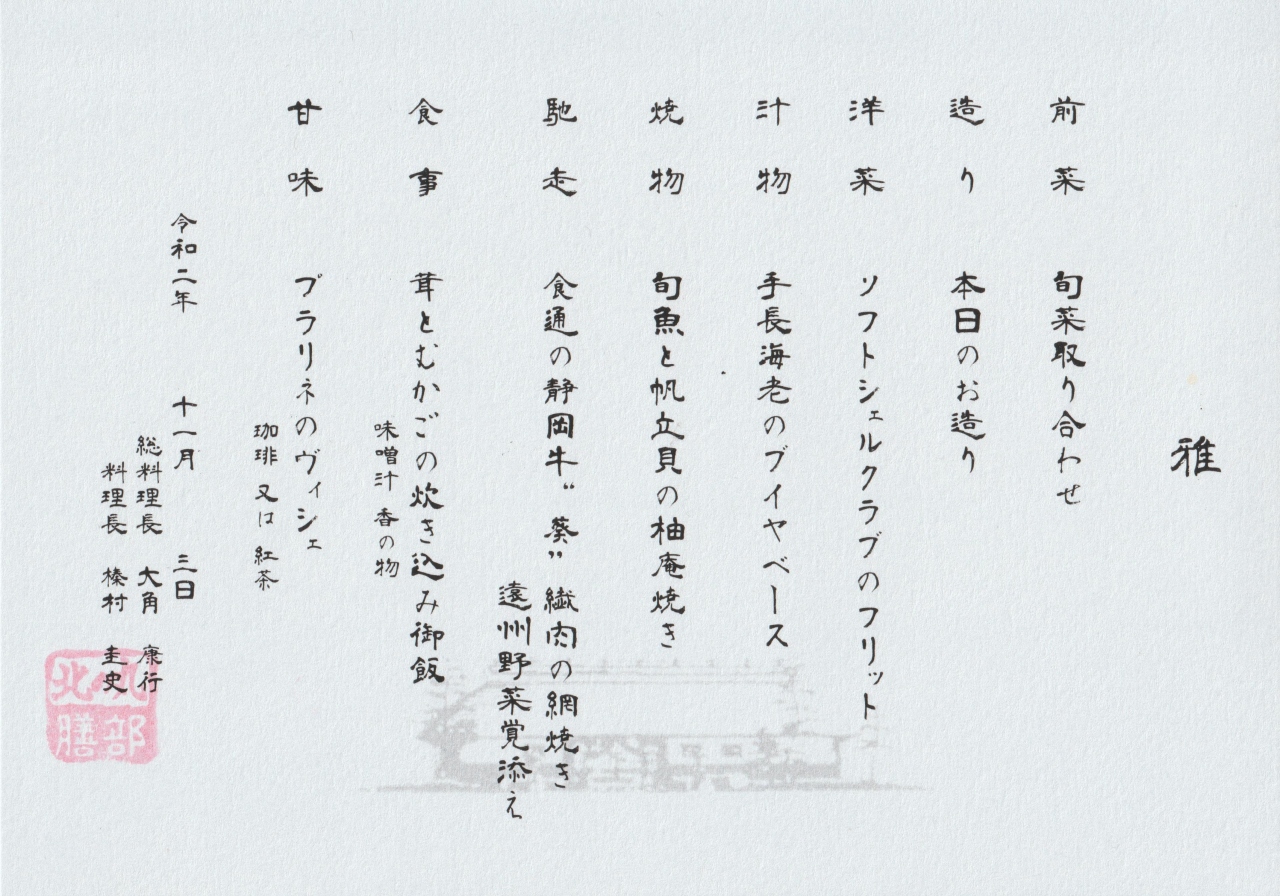 雅
前菜 旬菜取り合わせ
造り 本日のお造り
洋菜 ソフトシェルクラブのフリット
汁物 手長海老のブイヤベース
焼物 旬魚と帆立貝の柚庵焼き
馳走 食通の静岡牛“葵”繊肉の網焼き
遠州野菜覚添え
食事 茸とむかごの炊き込み御飯
味噌汁 香の物
甘味 プラリネのヴィシェ
珈琲 又は 紅茶
令和二年 十一月 三日
総料理長 大角 康行
料理長 榛村 圭史